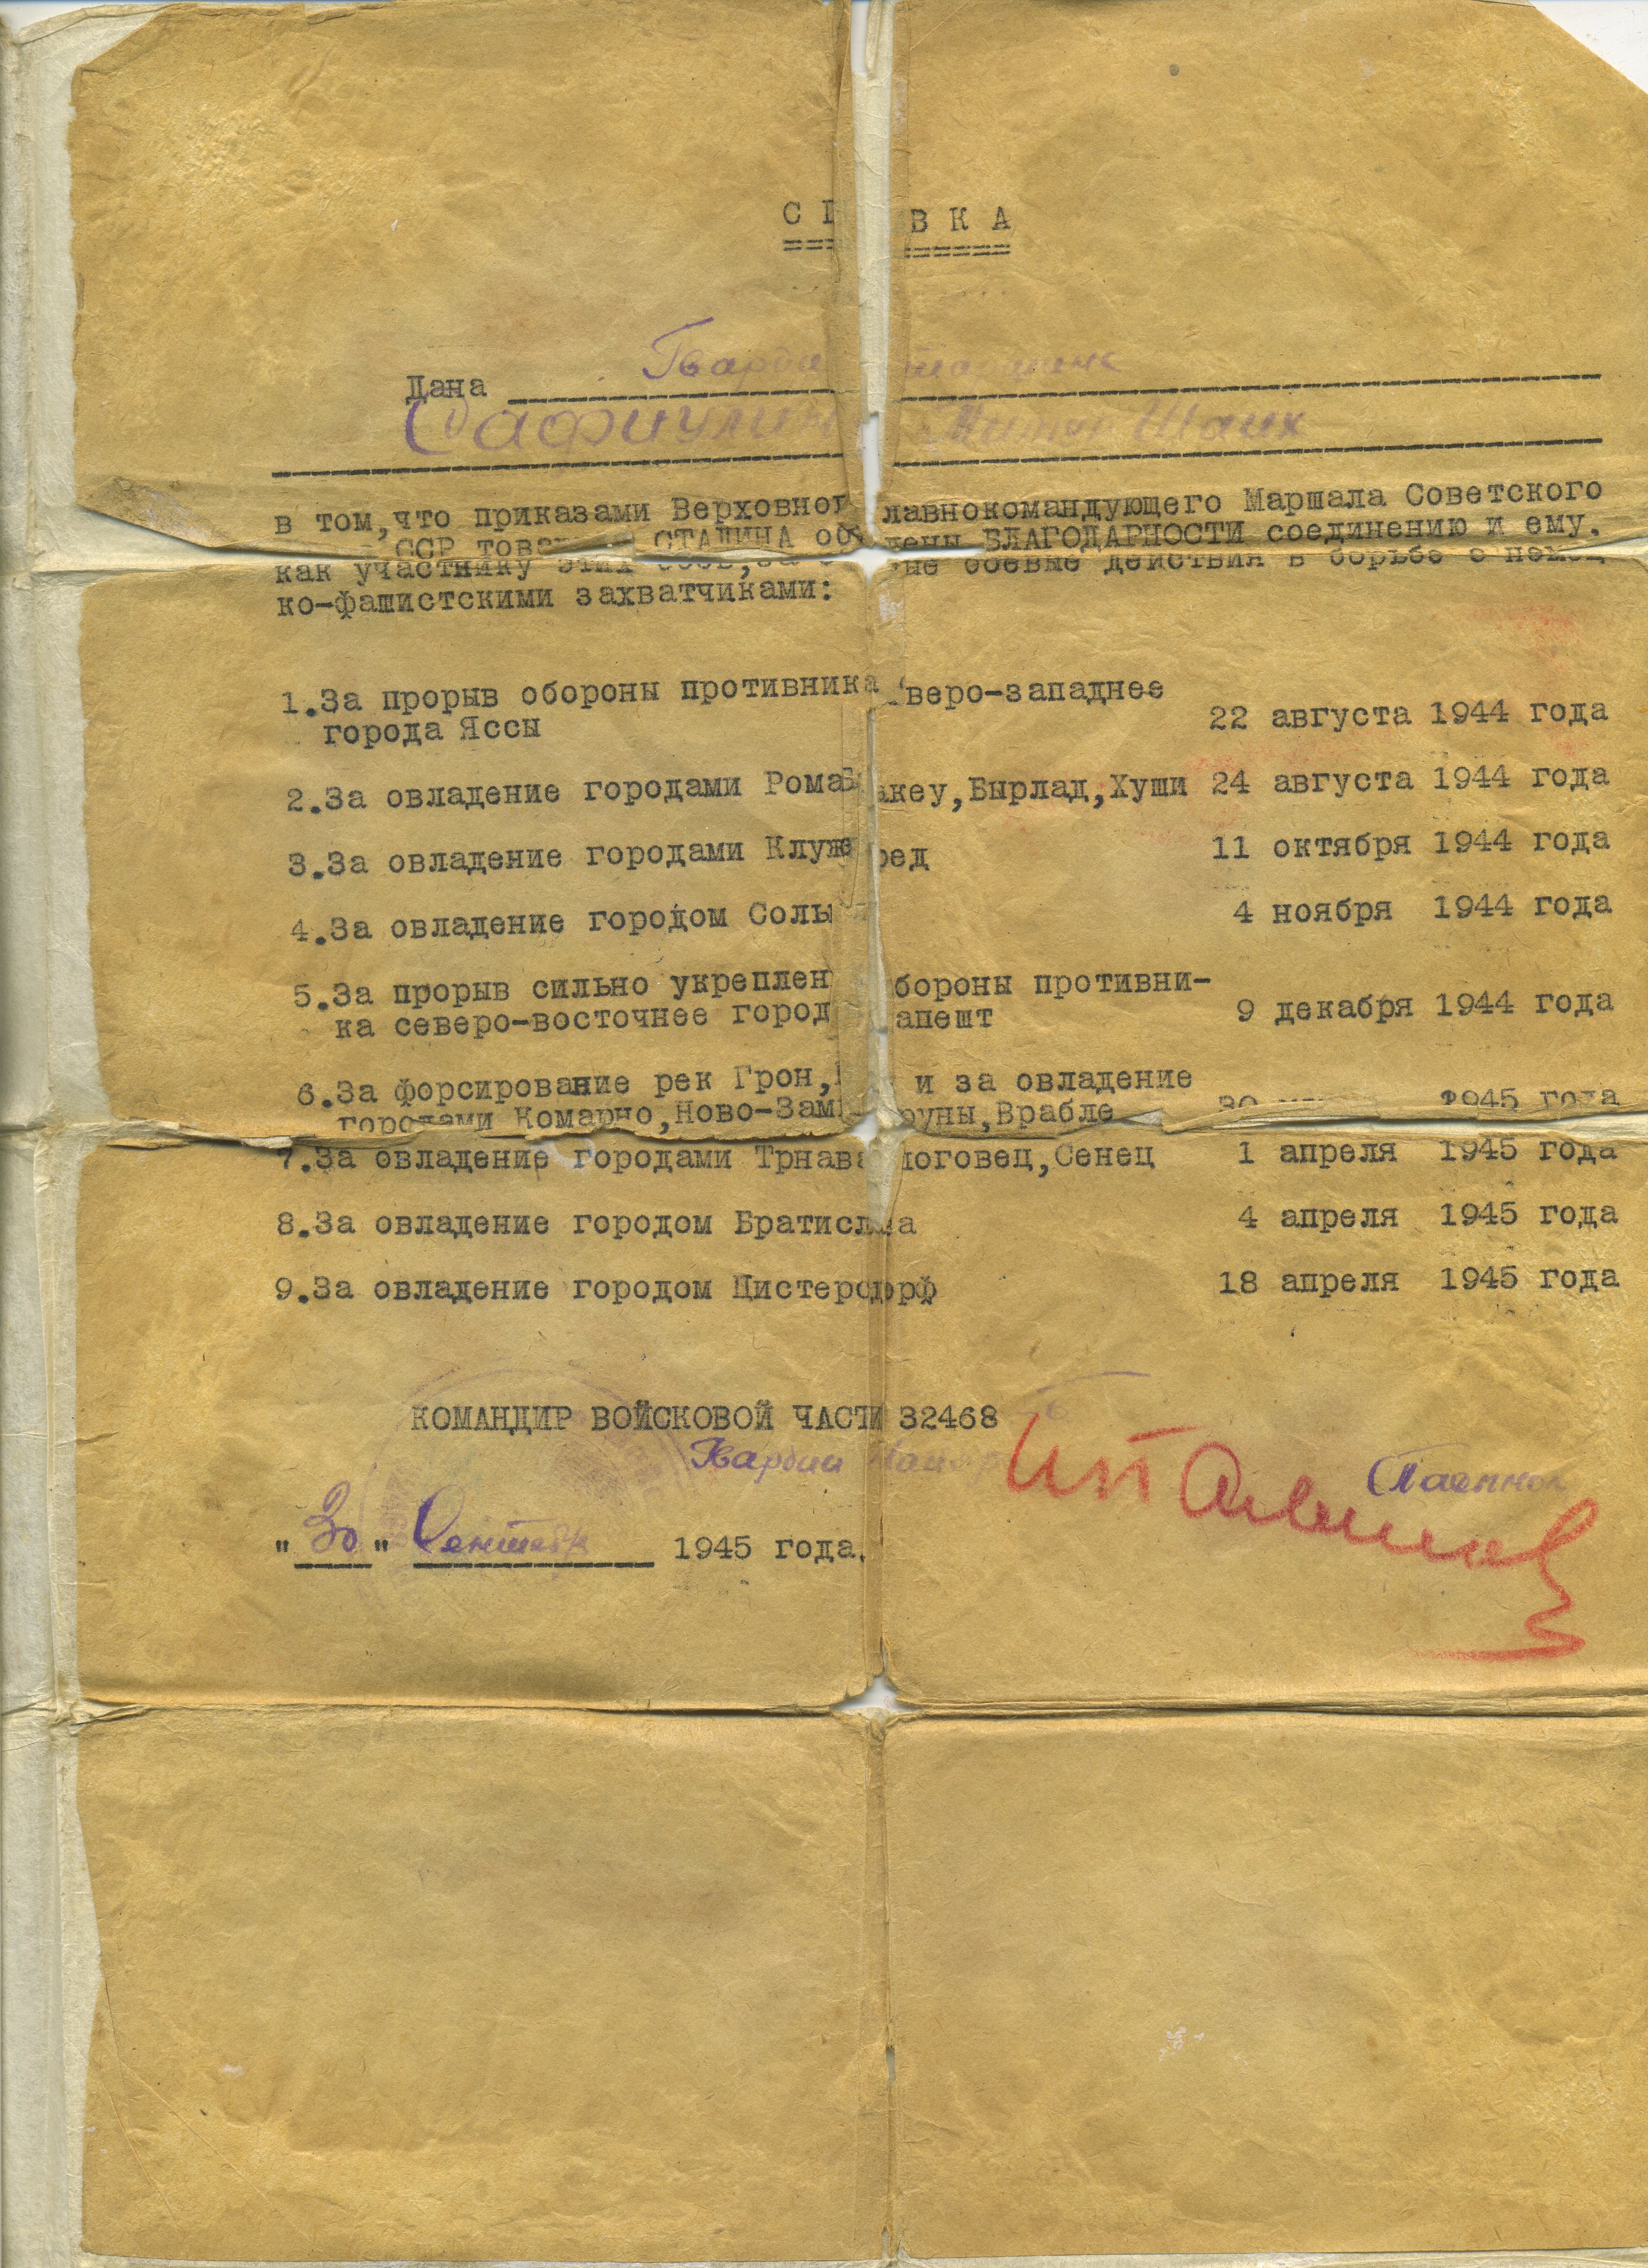 С П ВКА
Дана Гварди
Сафиулин Шаих
в том,что приказами Верховног лавнокомандующего Маршала Советского
ССР СТАЛИНА БЛАГОДАРНОСТИ соединению и ему,
как участнику этих боевые действия в борьбе с немец
ко-фашистскими захватчиками:
1.За прорыв обороны противника веро-западнее
города Яссы 22 августа 1944 года
2.За овладение городами Рома акеу,Бырлад,Хуши 24 августа 1944 года
3.За овладение городами Клуж ред 11 октября 1944 года
4.За овладение городом Соль 4 ноября 1944 года
5.За прорыв сильно укреплен бороны противни-
ка северо-восточнее город апешт 9 декабря 1944 года
6.За форсирование рек Грон, и за овладение
городами Комарно,Ново-Зам уны,Врабле 30 1945 года
7.За овладение городами Трнава логовец,Сенец 1 апреля 1945 года
8.За овладение городом Братислава 4 апреля 1945 года
9.За овладение городом Цистерсдорф 18 апреля 1945 года
КОМАНДИР ВОЙСКОВОЙ ЧАСТИ 32468
Гвардии Майор
"30" Сентябр 1945 года.